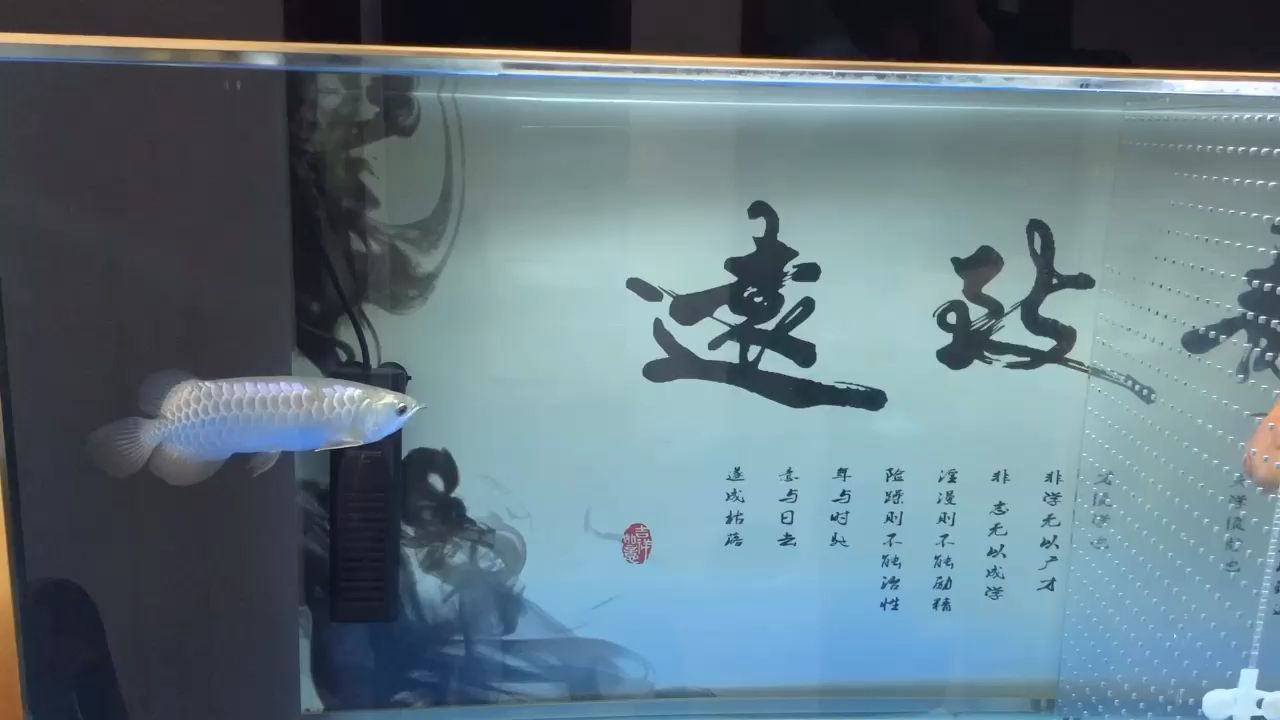 致遠
非学无以广才
非志无以成学
淫漫则不能励精
险躁则不能治性
年与时驰
意与日去
遂成枯落
吉祥如意